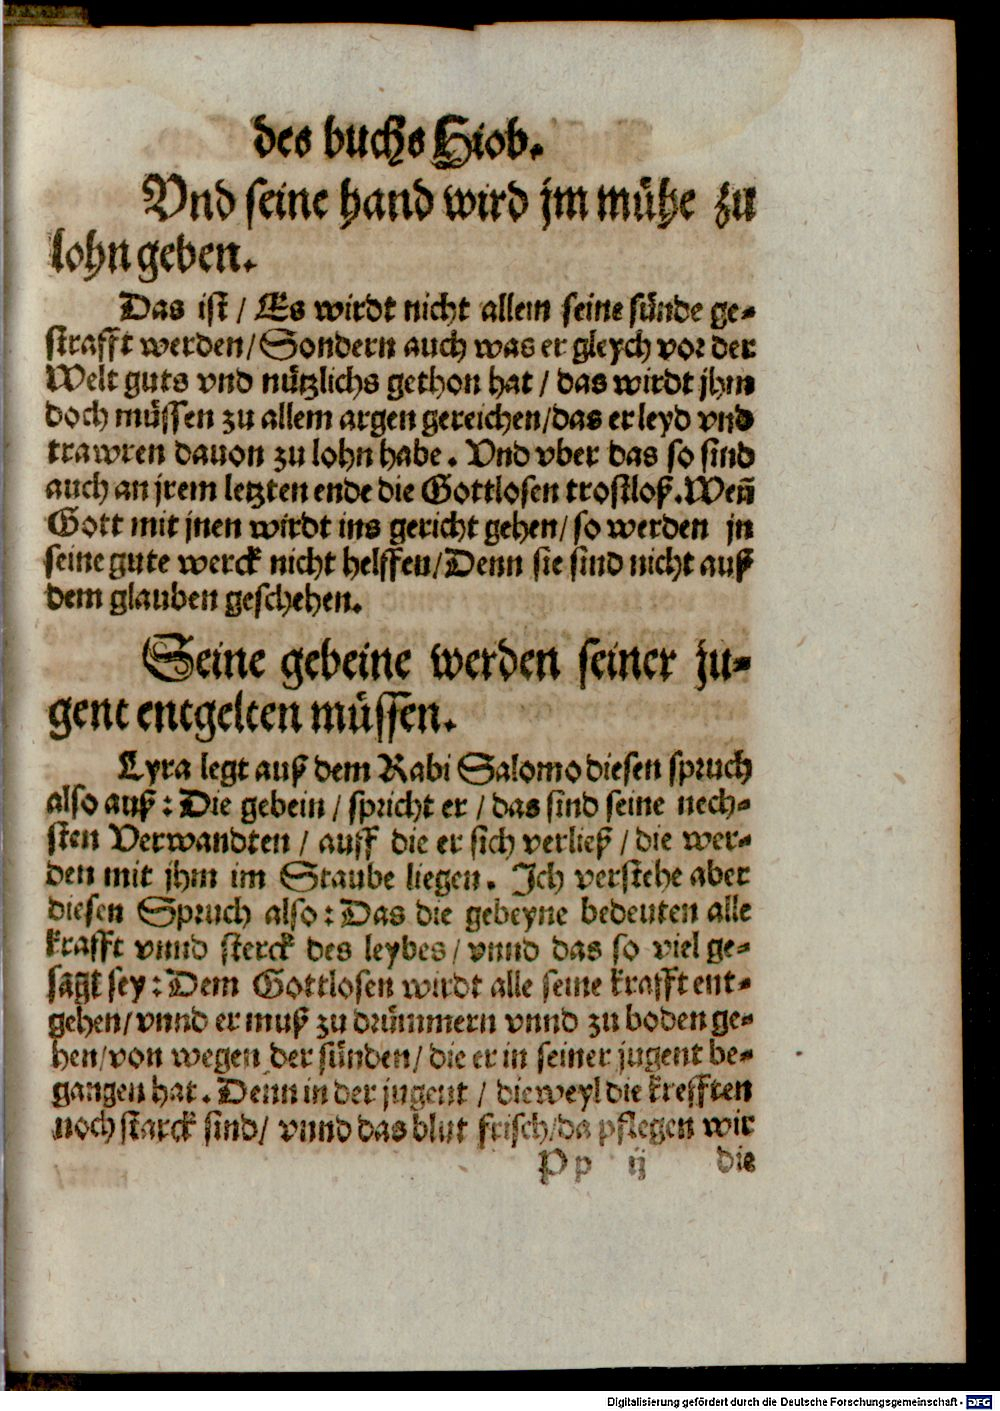 des buchs Hiob.
Vnd seine hand wird jm mühe zu
lohn geben.
Das ist / Es wirdt nicht allein seine sünde ge-
strafft werden/Sondern auch was er gleych vor der
Welt guts vnd nützlichs gethon hat / das wirdt jhm
doch müssen zu allem argen gereichen/das er leyd vnd
trawren dauon zu lohn habe. Vnd vber das so sind
auch an jrem letzten ende die Gottlosen trostloß. Weñ
Gott mit jnen wirdt ins gericht gehen/ so werden jn
seine gute werck nicht helffen/Denn sie sind nicht auß
dem glauben geschehen.
Seine gebeine werden seiner ju-
gent entgelten müssen.
Lyra legt auß dem Rabi Salomo diesen spruch
also auß: Die gebein / spricht er / das sind seine nech-
sten Verwandten / auff die er sich verließ / die wer-
den mit jhm im Staube liegen. Ich verstehe aber
diesen Spruch also: Das die gebeyne bedeuten alle
krafft vnnd sterck des leybes/ vnnd das so viel ge-
sagt sey: Dem Gottlosen wirdt alle seine krafft ent-
gehen/vnnd er muß zu drümmern vnnd zu boden ge-
hen/von wegen der sünden/ die er in seiner jugent be-
gangen hat. Denn in der jugent / dieweyl die krefften
noch starck sind/ vnnd das blut frisch/da pflegen wir
Pp ij die
Digitalisierung gefördert durch die Deutsche Forschungsgemeinschaft - DFG